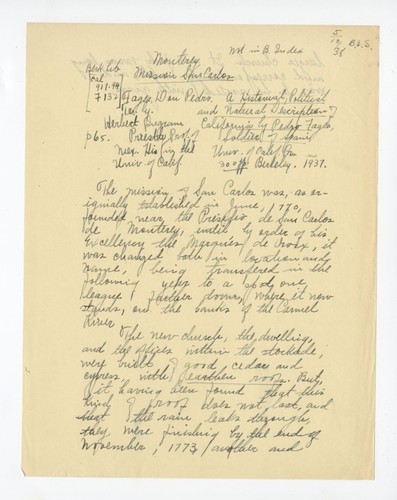 Monterey
Not in B. Index
5/12/38 B.E.S.
Mission San Carlos
Berk. Lib
Cal 917.94 F132
Fages, Don Pedro. A Historical, Political
Tr. by and Natural Description of
Herbert Ingram California by Pedro Fages,
p 65. Priestly, Prof. of Soldier of Spain
Mex. His. in the Univ. of Calif. Pr.
Univ. of Calif 300 Berkeley. 1937.
The mission of San Carlos was, as or-
iginally established in June, 1770,
founded near the Presidio de San Carlos
de Monterey, until by order of his
Excellency the Marqués de Croix, it
was changed, both in location and
name, being transfered in the
following year to a spot one
league further down, where it now
stands, on the banks of the Carmel
River
The new church, the dwelling,
and the offices within the stockade,
were built of good, cedar and
cypress, with earthen roofs. But,
it, having been found that this
kind of roof does not last, and
that the rain leaks through,
they were finishing by the end of
November, 1773, another and